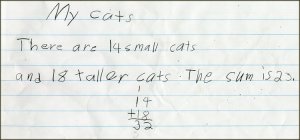 My cats
There are 14 small cats
and 18 taller cats. The sum is 23.
1
14
+18
32